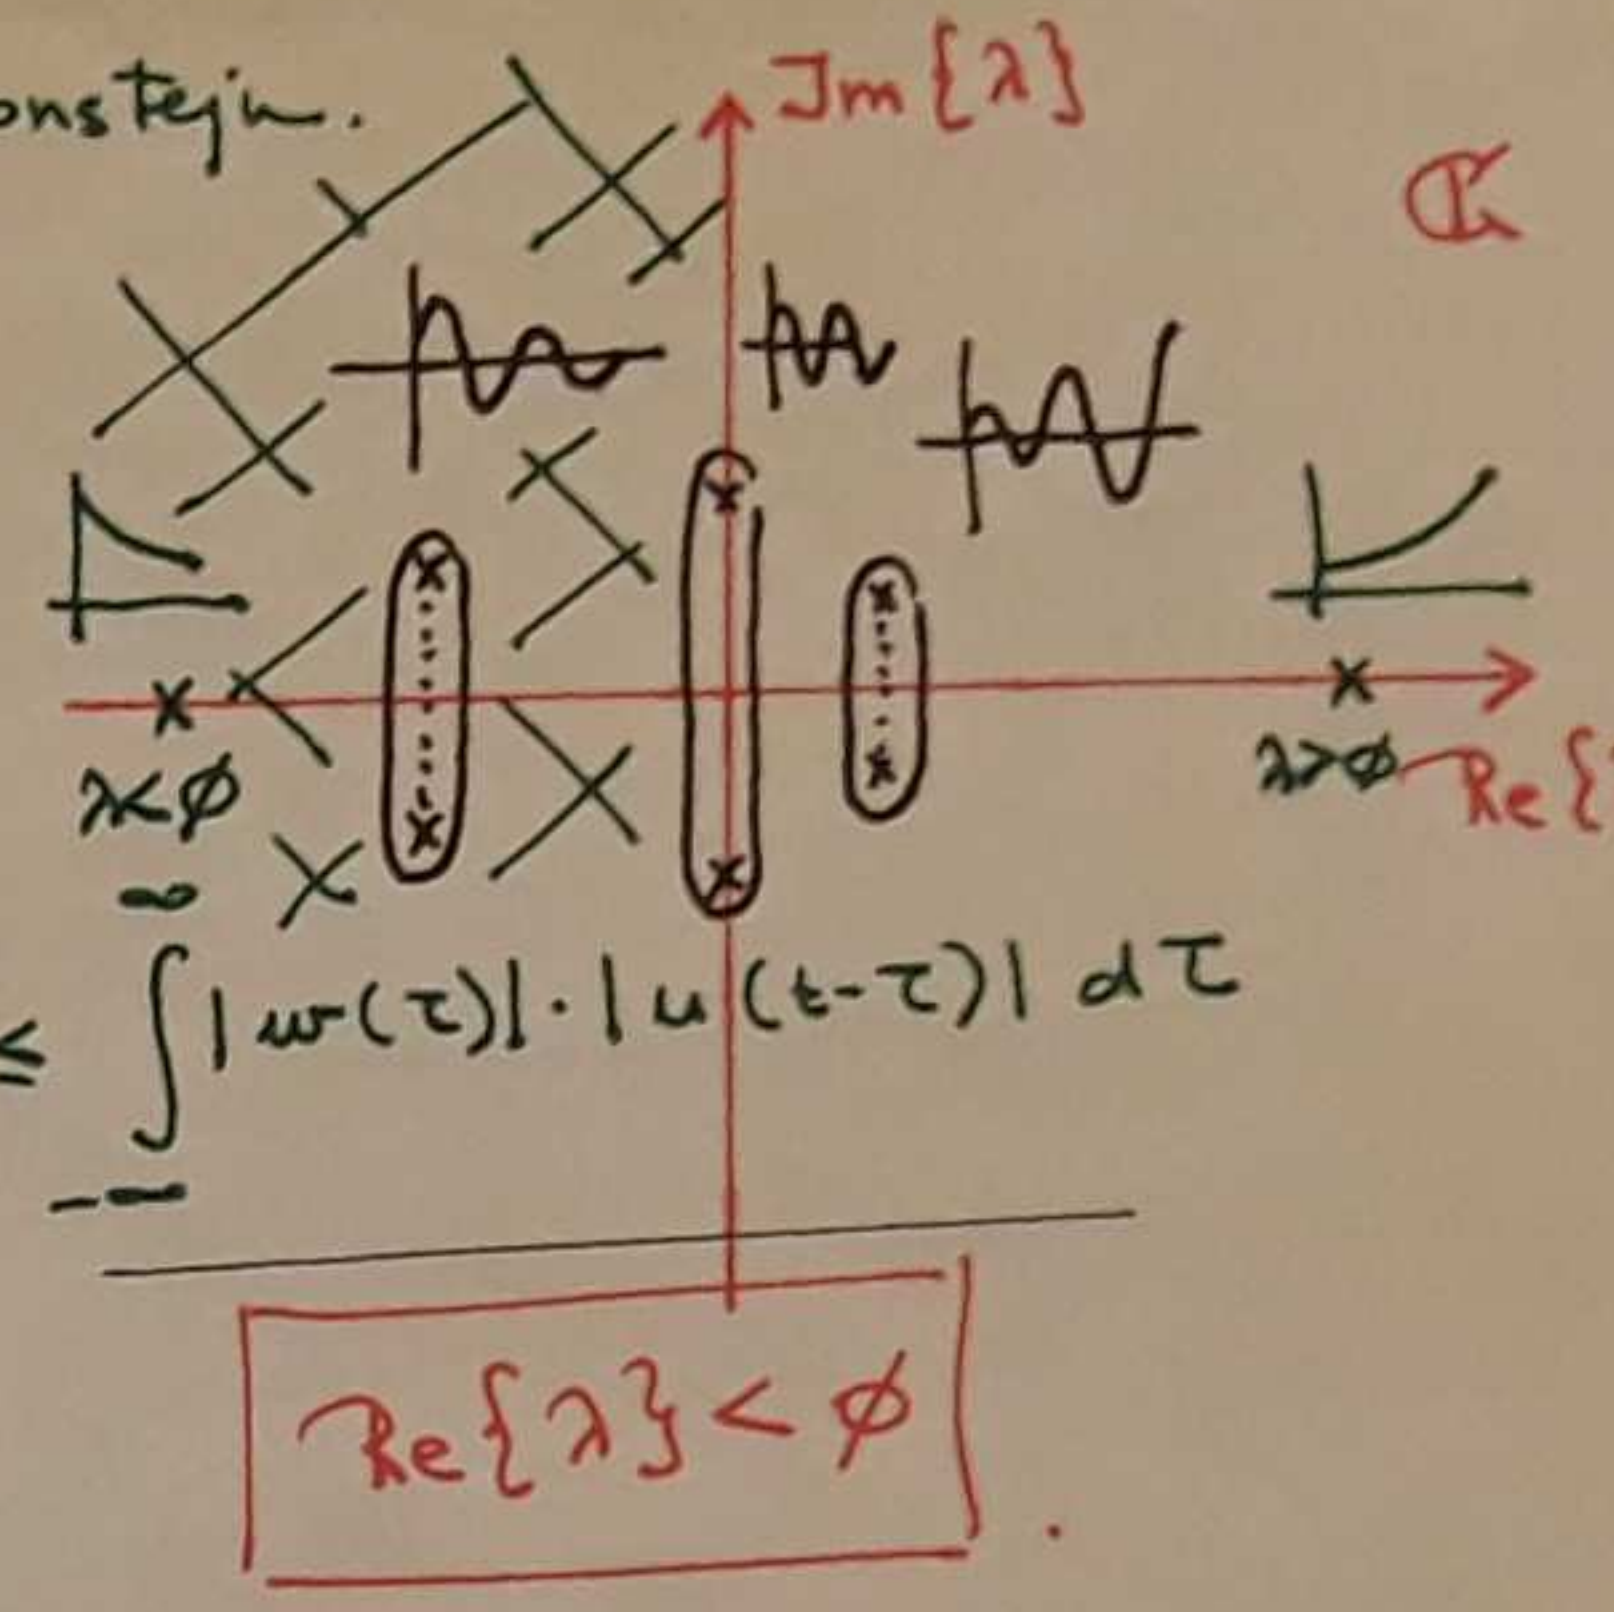 onstejn.
Im{λ}
ℂ
λ<∅
λ>∅
Re{
≤ ∫_{-∞}^{∞} |w(τ)|·|u(t-τ)| dτ
Re{λ}<∅.